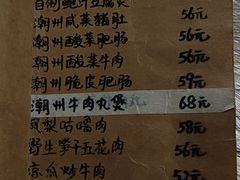 潮州咸菜猪肚 56元
潮州酸菜肥肠 56元
潮州酸菜牛肉 56元
潮州脆皮肥肠 59元
潮州牛肉丸煲 68元
凤梨咕噜肉 58元
野生笋子五花肉 56元
凉瓜炒牛肉 52元